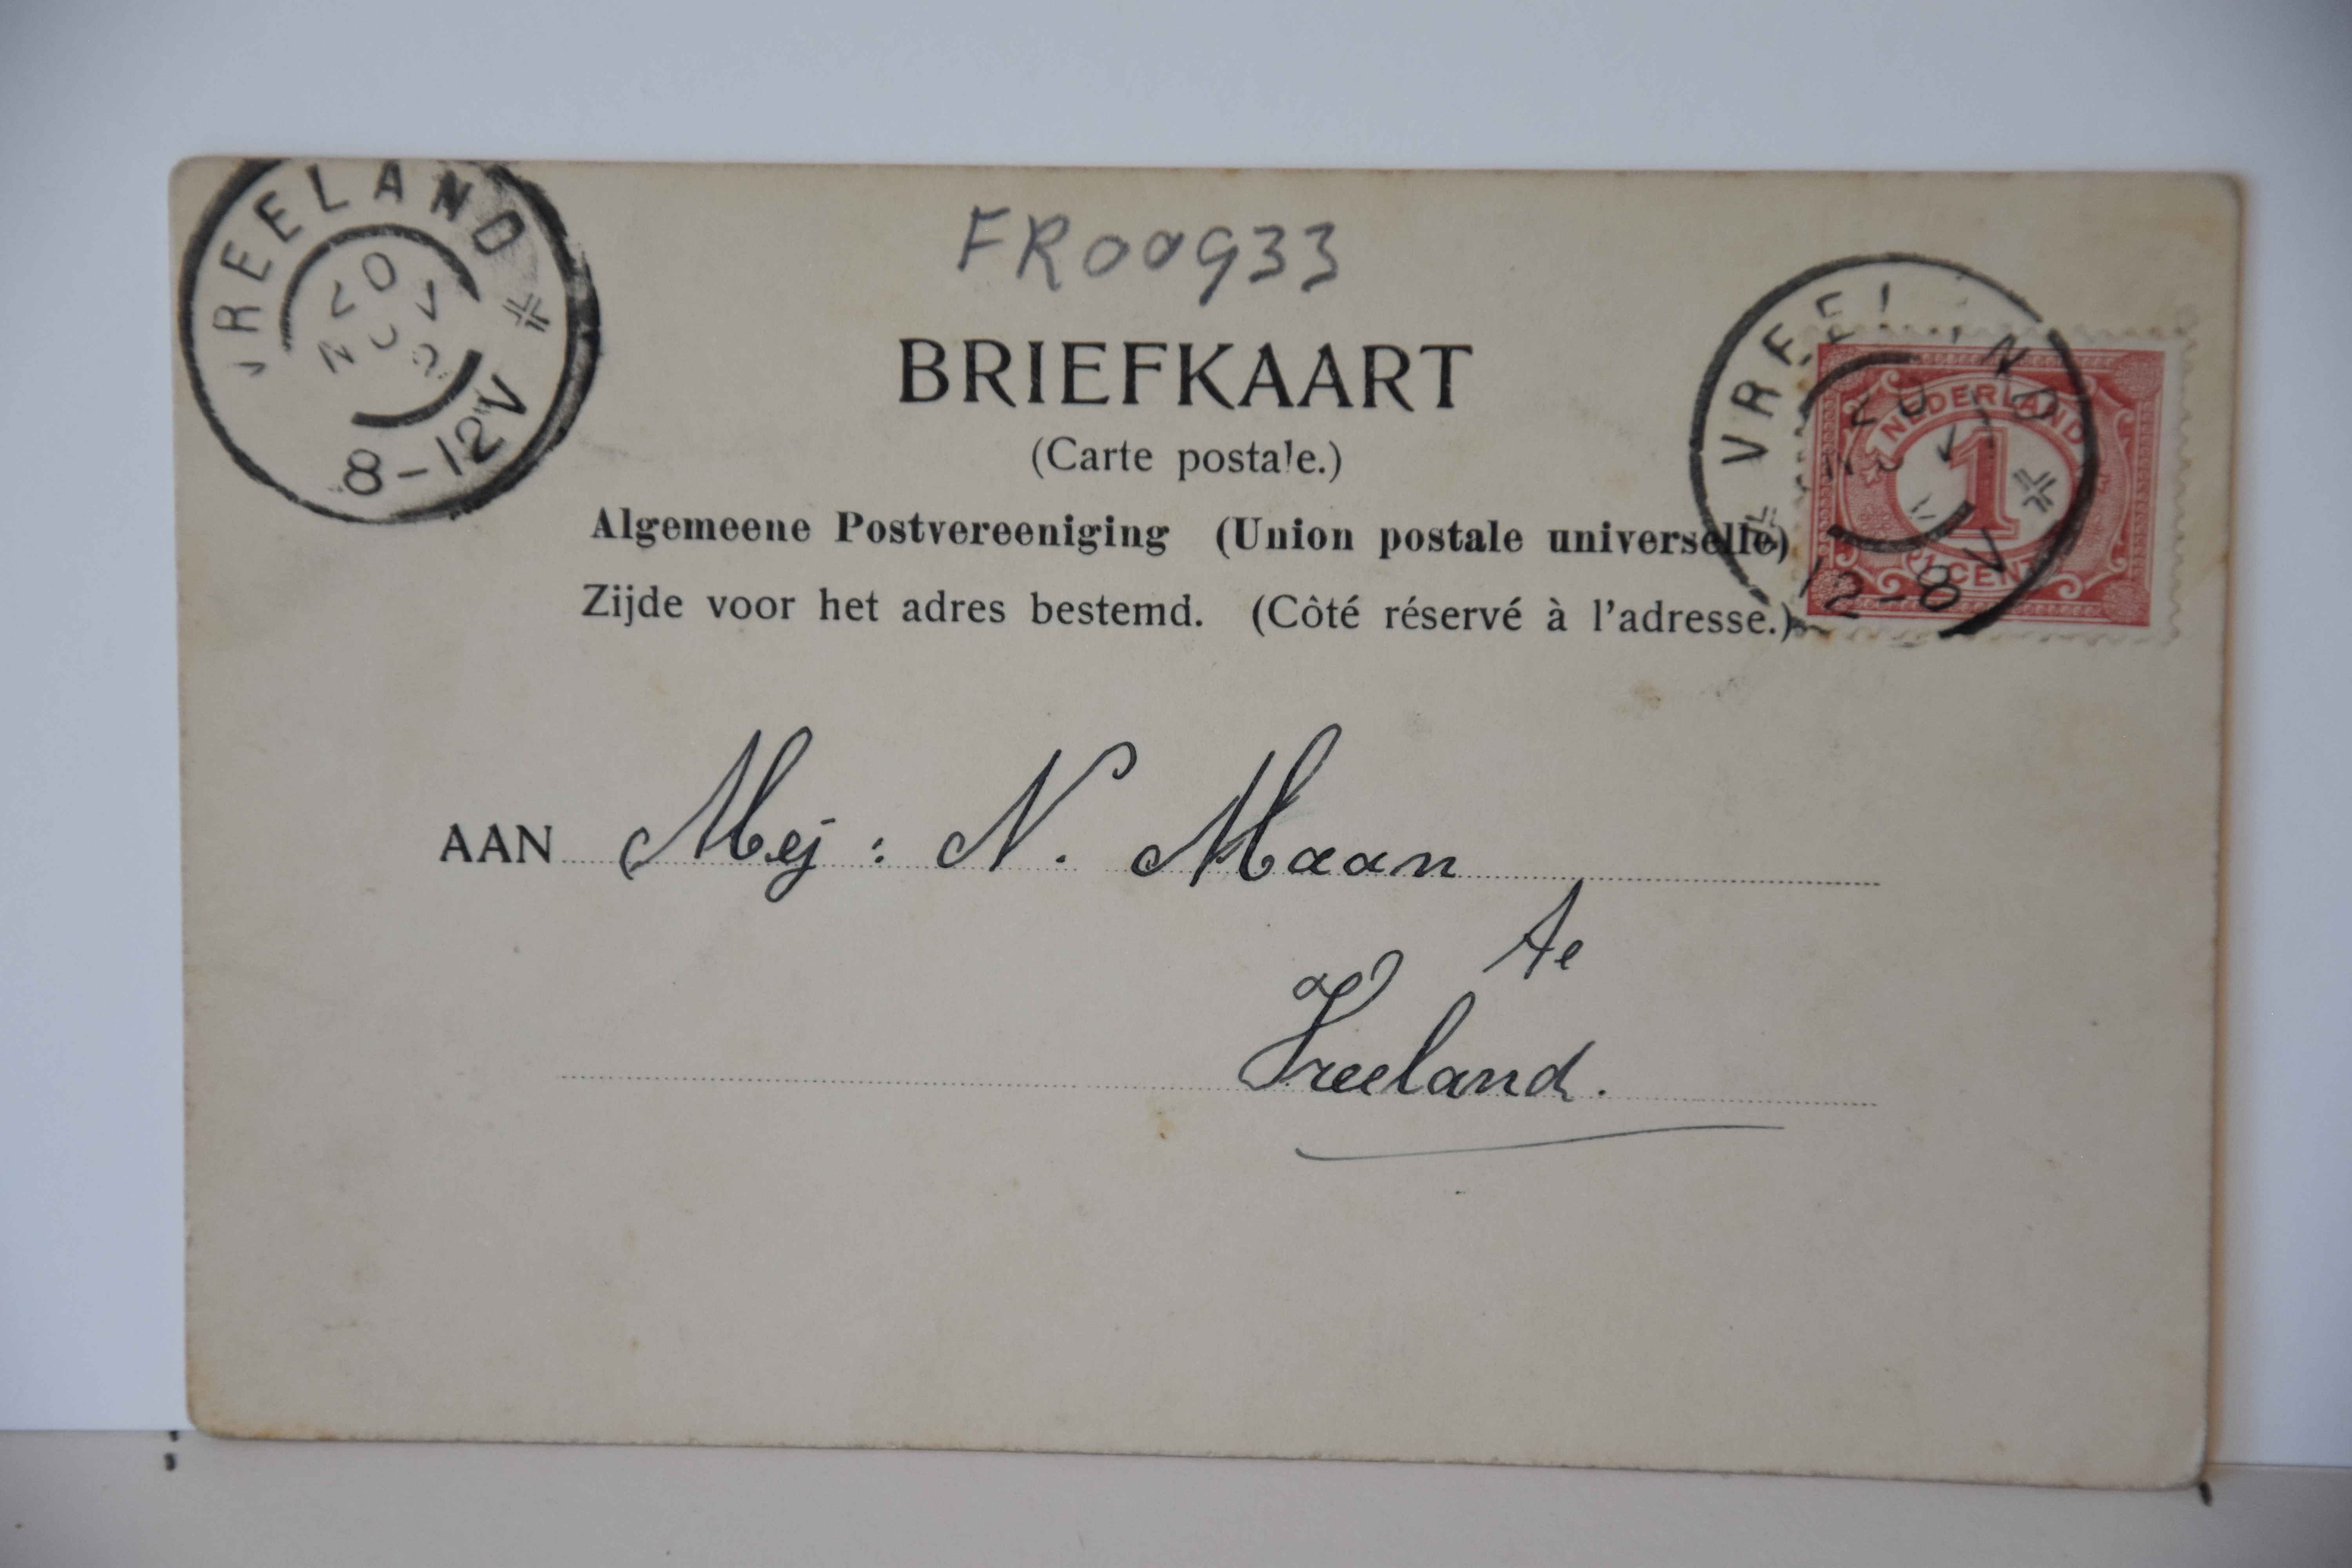 VREELAND
20
NOV
8-12V
FR00933
BRIEFKAART
(Carte postale.)
Algemeene Postvereeniging (Union postale universelle)
Zijde voor het adres bestemd. (Côté réservé à l'adresse.)
VREELAND
20
NOV
12-8V
NEDERLAND
1
1 CENT
AAN Mej: N. Maan
Te
Vreeland.